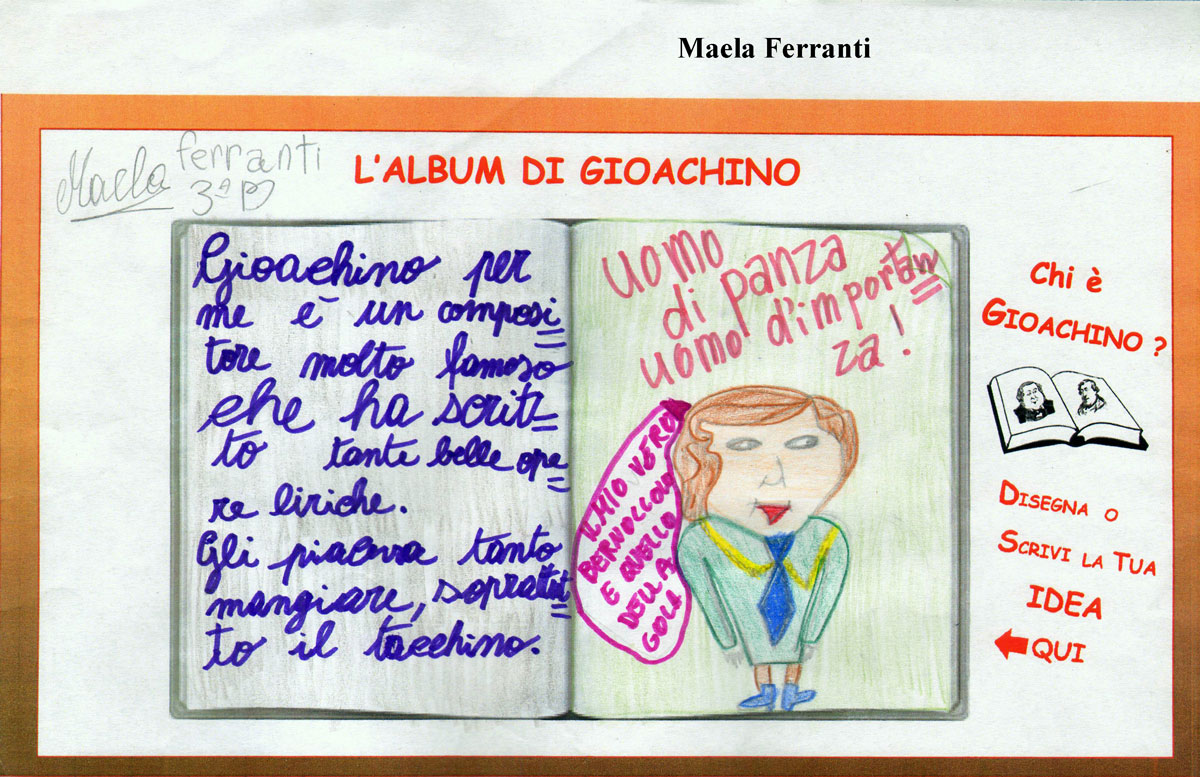 Maela Ferranti
Maela ferranti
3ª B
L'ALBUM DI GIOACHINO
Gioachino per
me è un composi
tore molto famoso
che ha scrit-
to tante belle ope
re liriche.
Gli piaceva tanto
mangiare, soprattut
to il tacchino.
uomo
di panza
uomo d'importan
za!
IL MIO VERO
BERNOCCOLO
E QUELLO
DELLA
GOLA
Chi è
GIOACHINO ?
DISEGNA O
SCRIVI LA TUA
IDEA
QUI